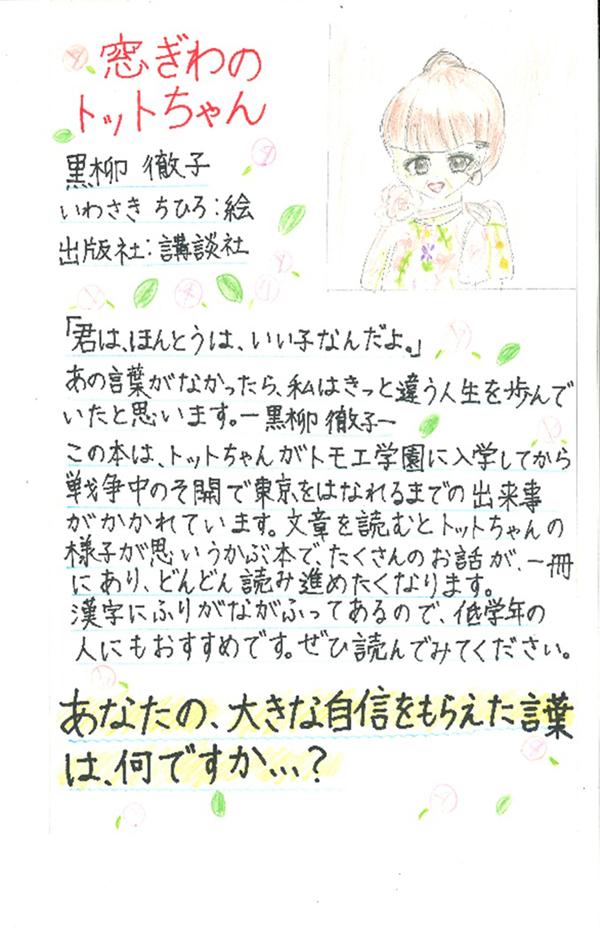 窓ぎわの
トットちゃん
黒柳 徹子
いわさき ちひろ:絵
出版社:講談社
「君は、ほんとうは、いい子なんだよ。」
あの言葉がなかったら、私はきっと違う人生を歩んで
いたと思います。ー黒柳 徹子ー
この本は、トットちゃんがトモエ学園に入学してから
戦争中のそ開で東京をはなれるまでの出来事
がかかれています。文章を読むとトットちゃんの
様子が思いうかぶ本で、たくさんのお話が、一冊
にあり、どんどん読み進めたくなります。
漢字にふりがながふってあるので、低学年の
人にもおすすめです。ぜひ読んでみてください。
あなたの、大きな自信をもらえた言葉
は、何ですか...?